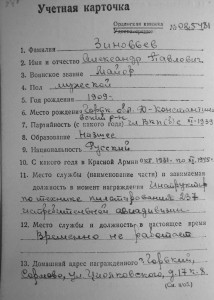 Учетная карточка
Орденская книжка
1. Фамилия Зиновьев
2. Имя и отчество Александр Павлович
3. Воинское звание Майор
4. Пол мужской
5. Год рождения 1909
6. Место рождения Горьк. обл. Д-Константин
7. Партийность (с какого года)
8. Образование Низшее
9. Национальность Русский
10. С какого года в Красной Армии
11. Место службы (наименование части) и занимаемая
должность в момент награждения Инструктор
по технике пилотирования
истребительной
12. Место службы и должность в настоящее время
Временно не работает
13. Домашний адрес награжденного г. Горький,
Сормово, ул.
(См. об.)